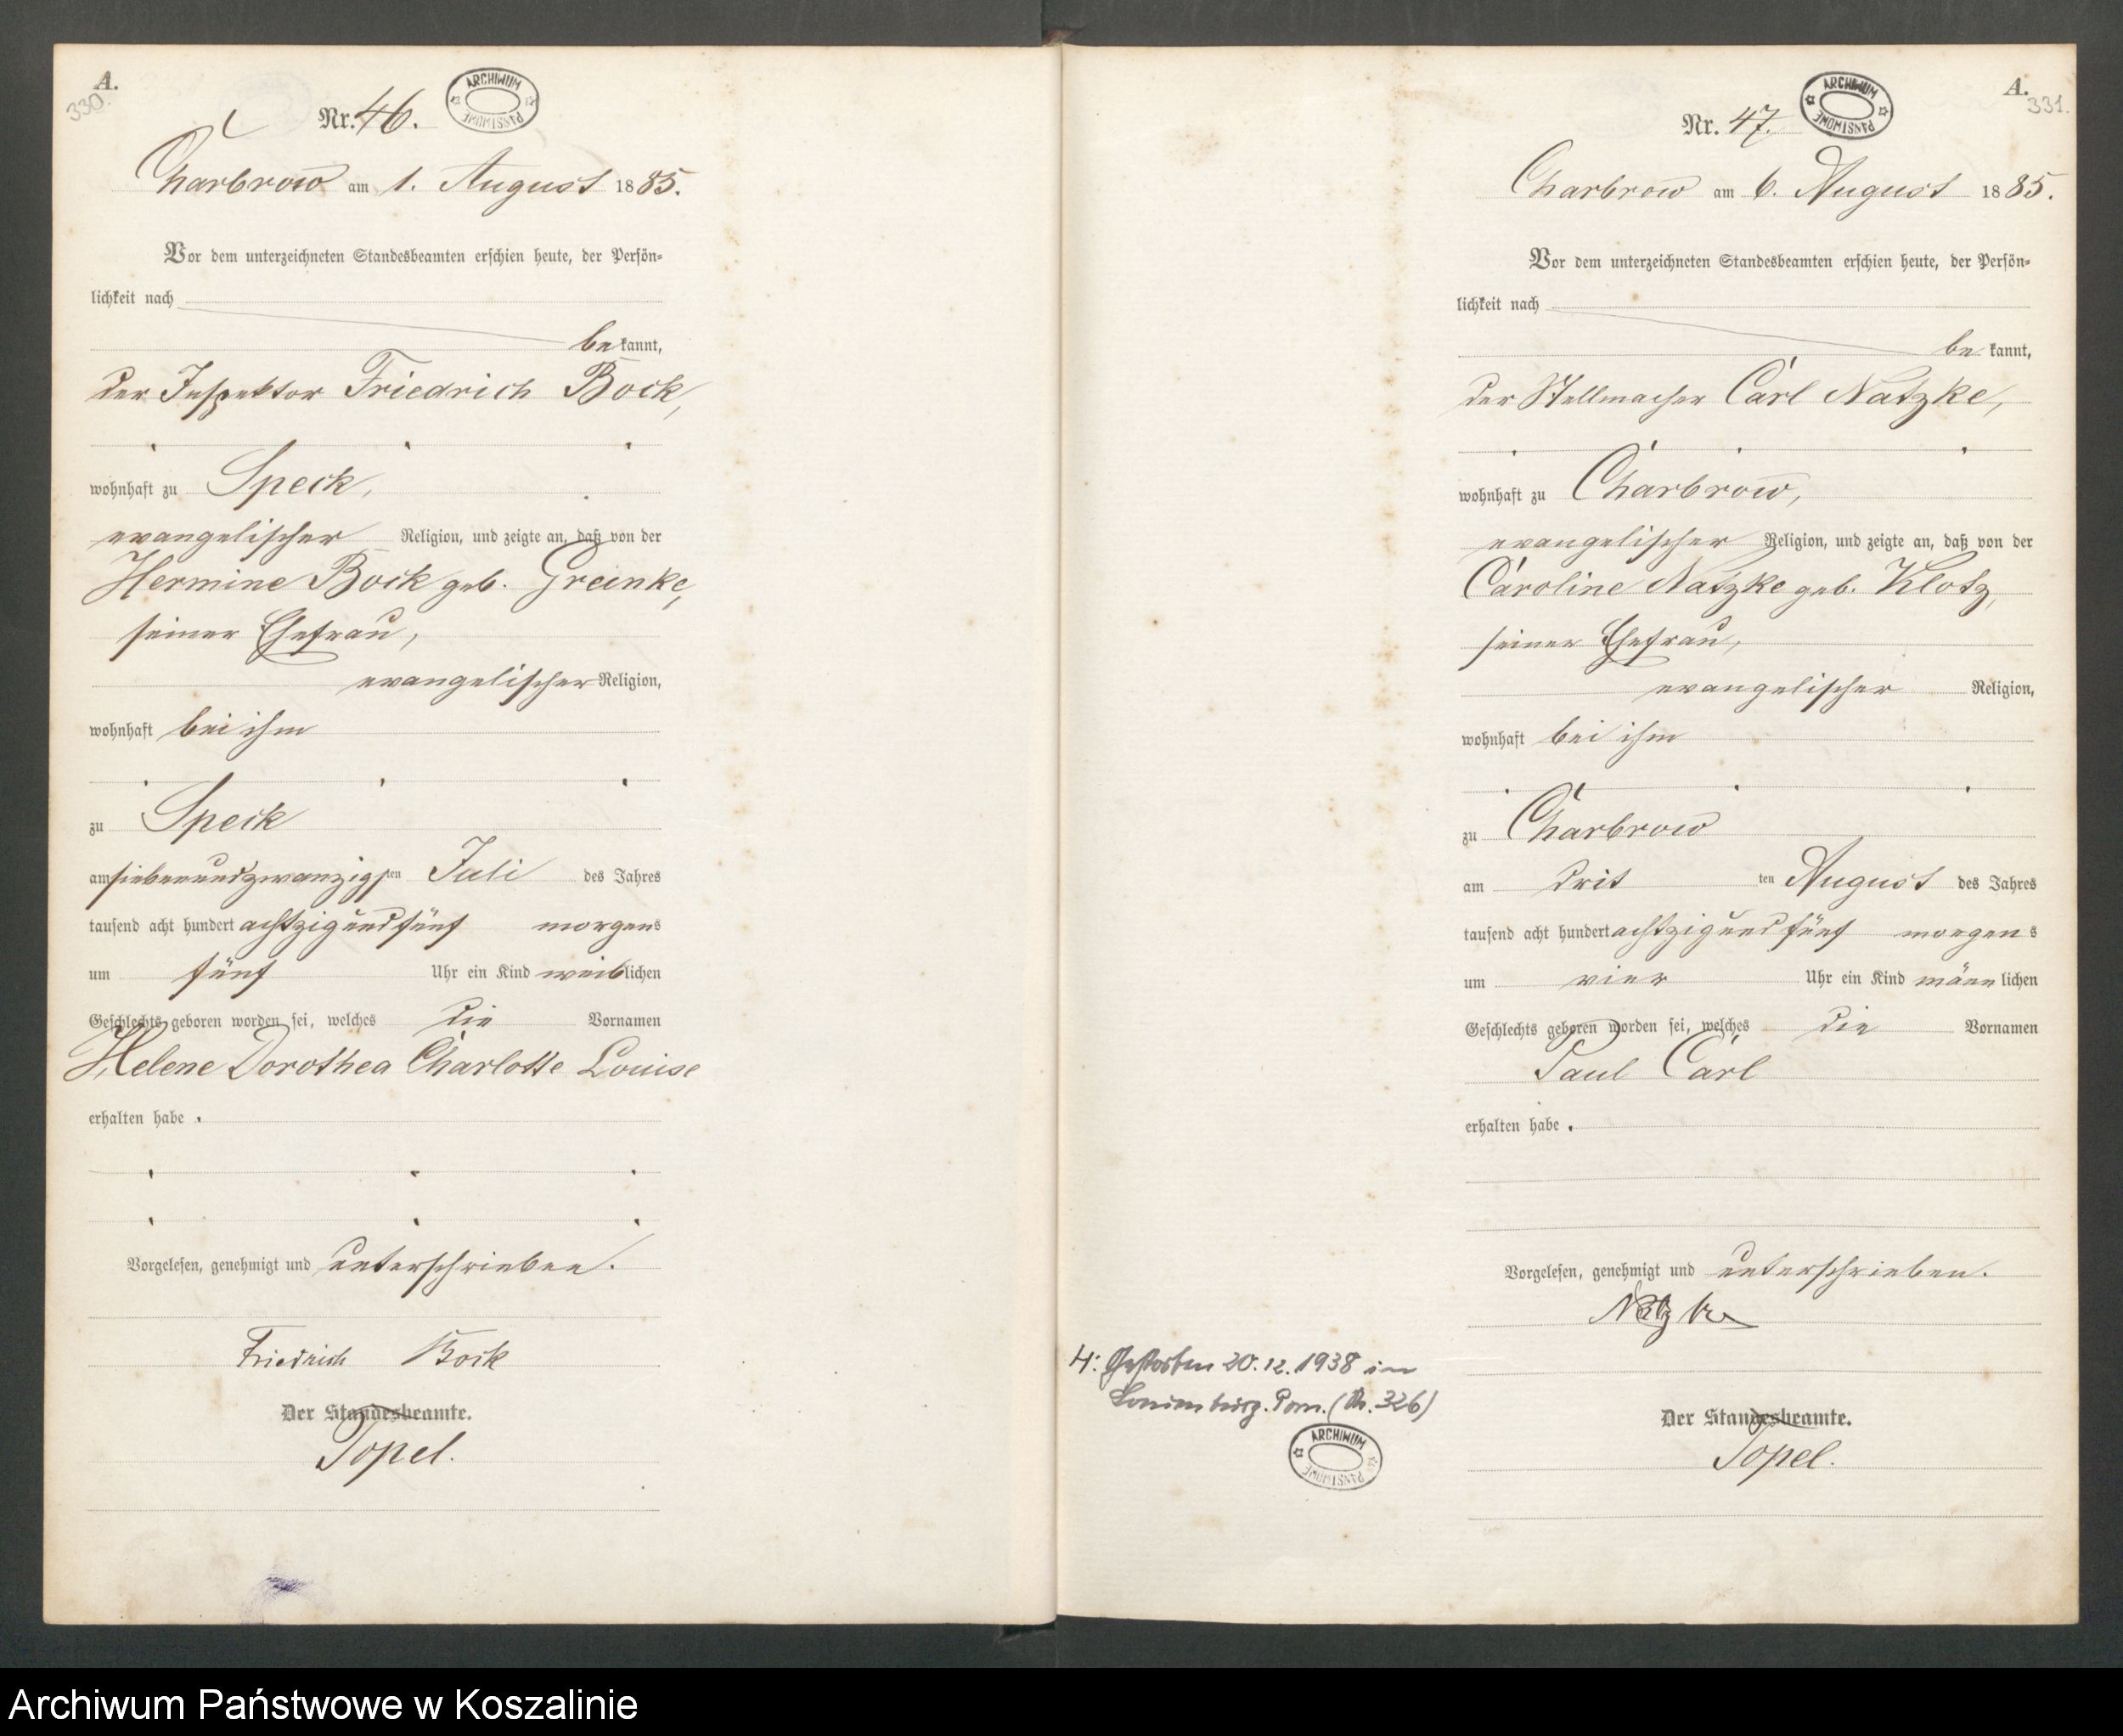 A.
330.
Nr. 46.
ARCHIWUM PAŃSTWOWE
Charbrow am 1. August 1885.
Vor dem unterzeichneten Standesbeamten erschien heute, der Persön-
lichkeit nach
bekannt,
der Inspektor Friedrich Bock,
wohnhaft zu Speck,
evangelischer Religion, und zeigte an, daß von der
Hermine Bock geb. Greinke,
seiner Ehefrau,
evangelischer Religion,
wohnhaft bei ihm
zu Speck
am siebenundzwanzigsten Juli des Jahres
tausend acht hundert achtzig und fünf morgens
um fünf Uhr ein Kind weiblichen
Geschlechts geboren worden sei, welches die Vornamen
Helene Dorothea Charlotte Louise
erhalten habe.
Vorgelesen, genehmigt und unterschrieben.
Friedrich Bock
Der Standesbeamte.
Topel.
A.
331.
Nr. 47.
ARCHIWUM PAŃSTWOWE
Charbrow am 6. August 1885.
Vor dem unterzeichneten Standesbeamten erschien heute, der Persön-
lichkeit nach
bekannt,
der Stellmacher Carl Natzke,
wohnhaft zu Charbrow,
evangelischer Religion, und zeigte an, daß von der
Caroline Natzke geb. Klotz,
seiner Ehefrau,
evangelischer Religion,
wohnhaft bei ihm
zu Charbrow
am dritten August des Jahres
tausend acht hundert achtzig und fünf morgens
um vier Uhr ein Kind männlichen
Geschlechts geboren worden sei, welches die Vornamen
Paul Carl
erhalten habe.
Vorgelesen, genehmigt und unterschrieben.
Natzke
Der Standesbeamte.
Topel.
H: Gestorben 20.12.1938 in
Lauenburg. Pom. (Nr. 326)
ARCHIWUM PAŃSTWOWE
Archiwum Państwowe w Koszalinie